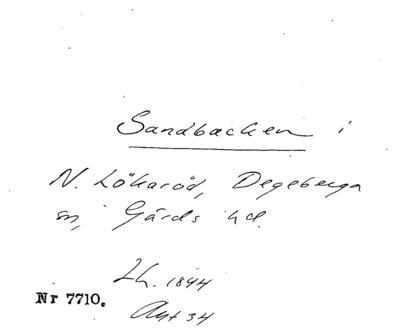 Sandbacken i
N. Lökaröd, Degeberga
sn, Gärds hd.
Lh. 1844
Nr 7710.
Akt 34